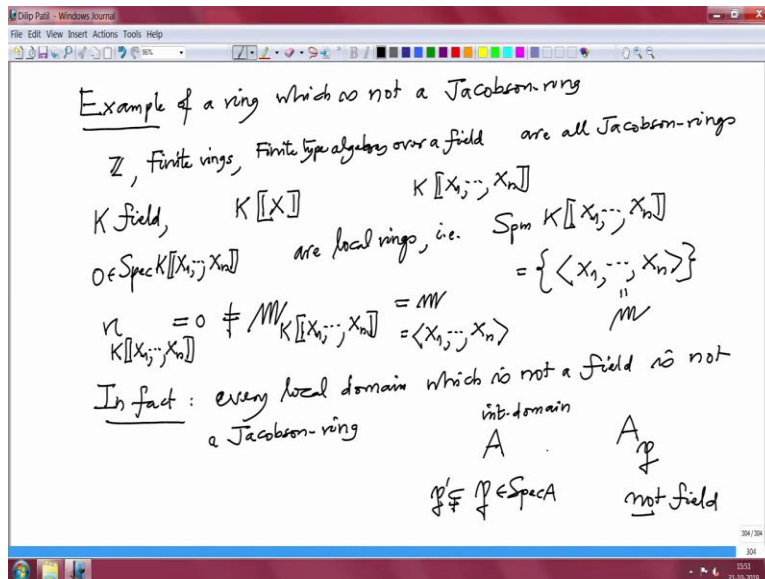 Dilip Patil - Windows Journal
File Edit View Insert Actions Tools Help
95%
Example of a ring which is not a Jacobson-ring
ℤ, Finite rings, Finite type algebras over a field are all Jacobson-rings
K field, K⟦X⟧ K⟦X₁,…,Xₙ⟧
0 ∈ Spec K⟦X₁,…,Xₙ⟧ are local rings, i.e. Spm K⟦X₁,…,Xₙ⟧
= {⟨X₁,…,Xₙ⟩}
𝔫 K⟦X₁,…,Xₙ⟧ = 0 ≠ 𝔪 K⟦X₁,…,Xₙ⟧ = 𝔪 = ⟨X₁,…,Xₙ⟩ " 𝔪
In fact : every local domain which is not a field is not
a Jacobson-ring
int. domain
A A𝔭
𝔭' ⊊ 𝔭 ∈ Spec A not field
304/304
304
15:51
31-10-2019